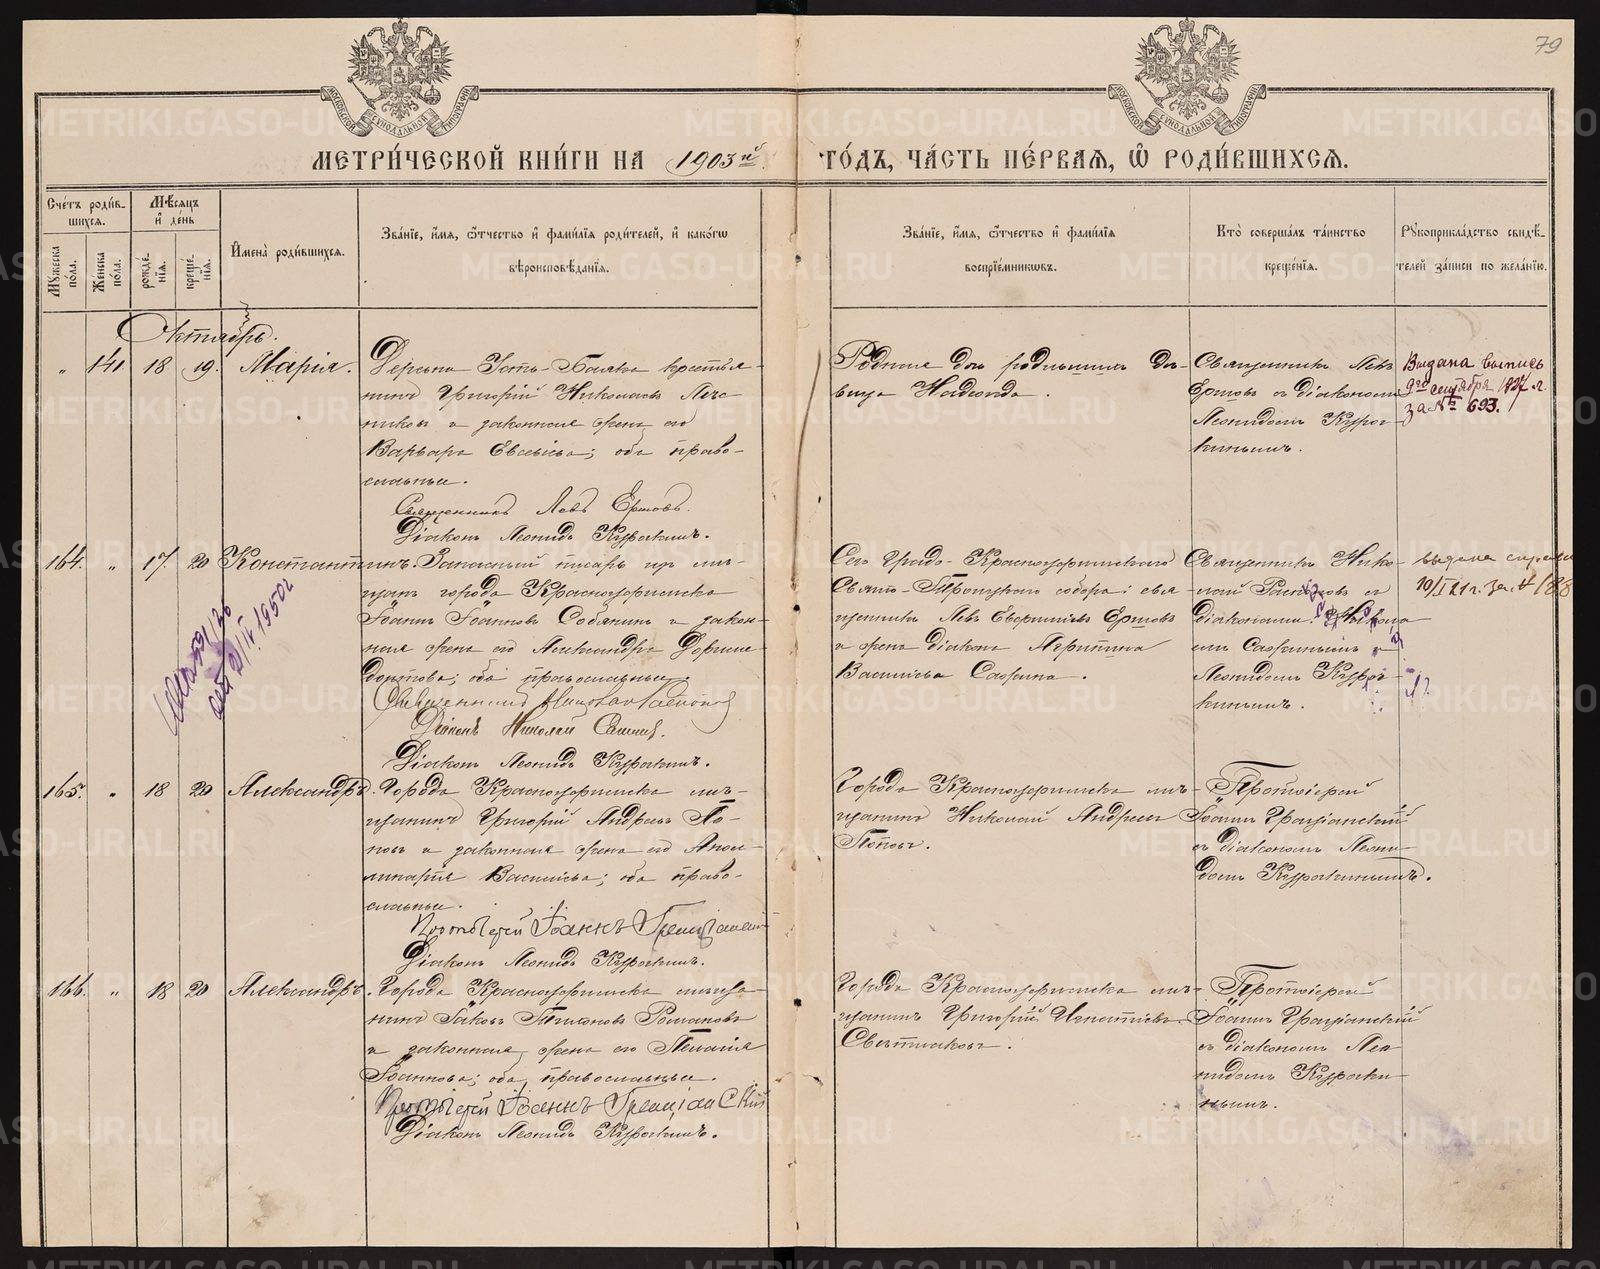 79
МОСКОВСКОЙ СѴНОДАЛЬНОЙ ТИПОГРАФІИ
МОСКОВСКОЙ СѴНОДАЛЬНОЙ ТИПОГРАФІИ
МЕТРИ́ЧЕСКОЙ КНИ́ГИ НА 1903й ГО́ДЪ, ЧА́СТЬ ПЕ́РВАЯ, Ѡ҆ РОДИ́ВШИХСЯ.
Сче́тъ роди́в-
шихся.
Мѣ́сяцъ
и҆ де́нь
Му́жеска
по́ла.
Же́нска
по́ла.
рожде́-
нїя.
креще́-
нїя.
И҆мена̀ роди́вшихся.
Зва́нїе, и҆́мя, ѻ҆́тчество и҆ фами́лїя роди́телей, и҆ како́гѡ
вѣроисповѣ́данїя.
Зва́нїе, и҆́мя, ѻ҆́тчество и҆ фами́лїя
воспрїе́мниковъ.
Кто̀ соверша́лъ та́инство
креще́нїя.
Рꙋкоприкла́дство свидѣ́-
телей за́писи по жела́нїю.
Октябрь.
„ 141 18 19. Марія.
Деревни Усть-Баяка крестья-
нинъ Григорій Николаевъ
и законная жена его
Варвара Евсеева; оба право-
славные.
Священникъ Левъ Ершовъ.
Діаконъ Леонидъ Куракинъ.
Родная дочь родившихъ дѣ-
вица Надежда.
Священникъ Левъ
Ершовъ съ діакономъ
Леонидомъ Кура-
кинымъ.
Выдана выпись
9го сентября 1927 г.
за № 693.
164. „ 17. 20 Константинъ.
Запасный писарь изъ мѣ-
щанъ города Красноуфимска
Іоаннъ Іоанновъ Собянинъ и закон-
ная жена его Александра Дориме-
донтова; оба православные.
Священникъ
Діаконъ Николай
Діаконъ Леонидъ Куракинъ.
Сего Градо-Красноуфимскаго
Свято-Троицкаго собора: свя-
щенникъ Левъ Евгеніевъ Ершовъ
и жена діакона Агриппина
Васильева
Священникъ Нико-
лай съ
діаконами: Никола-
емъ и
Леонидомъ Кура-
кинымъ.
выдана справка
165. „ 18 20 Александръ.
Города Красноуфимска мѣ-
щанинъ Григорій Андреевъ По-
повъ и законная жена его Апол-
линарія Васильева; оба право-
славные.
Протоіерей Іоаннъ Граціанскій
Діаконъ Леонидъ Куракинъ.
Города Красноуфимска мѣ-
щанинъ Николай Андреевъ
Поповъ.
Протоіерей
Іоаннъ Граціанскій
съ діакономъ Леони-
домъ Куракинымъ.
166. „ 18 20 Александръ.
Города Красноуфимска мѣща-
нинъ Іаковъ Тихоновъ Романовъ
и законная жена его Пелагія
Іоаннова; оба православные.
Протоіерей Іоаннъ Граціанскій
Діаконъ Леонидъ Куракинъ.
Города Красноуфимска мѣ-
щанинъ Григорій Игнатіевъ
Свѣтлаковъ.
Протоіерей
Іоаннъ Граціанскій
съ діакономъ Лео-
нидомъ Кураки-
нымъ.
METRIKI.GASO-URAL.RU